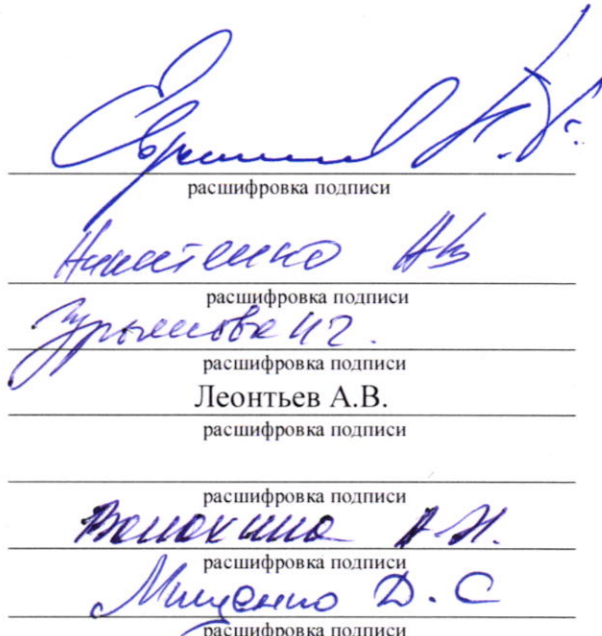 расшифровка подписи
Никитенко АВ
расшифровка подписи
расшифровка подписи
Леонтьев А.В.
расшифровка подписи
расшифровка подписи
Волохина А.Н.
расшифровка подписи
Мищенко Д.С
расшифровка подписи